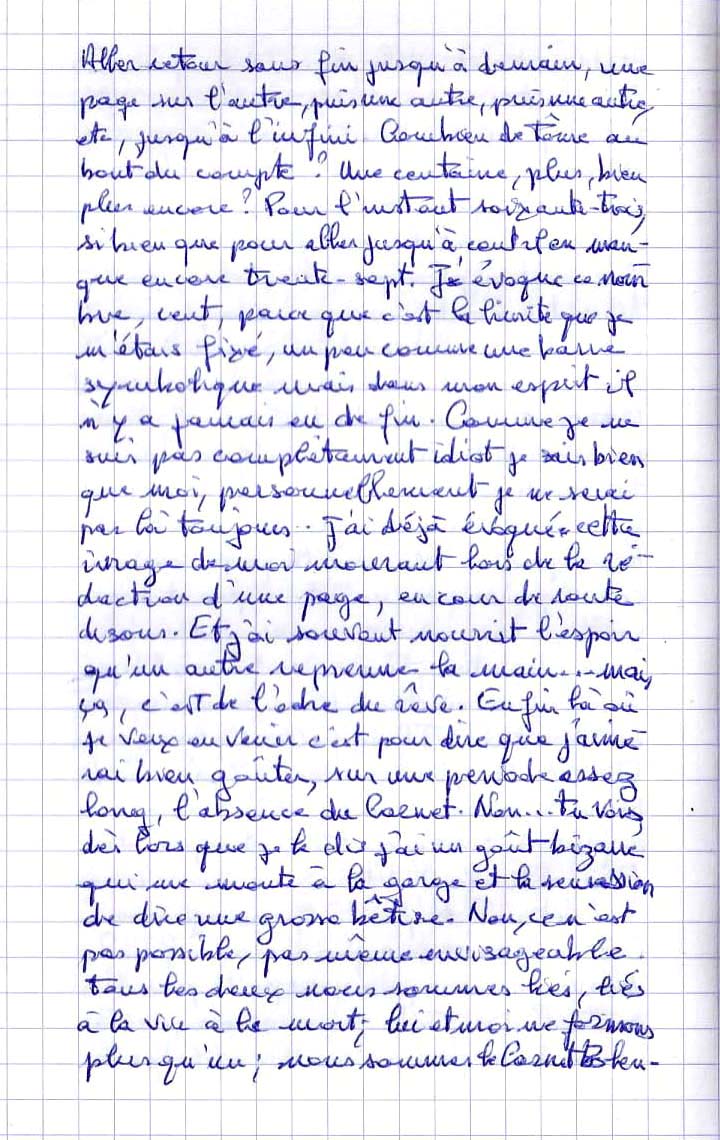 Aller retour sans fin jusqu'à demain, une
page sur l'autre, puis une autre, puis une autre,
etc, jusqu'à l'infini. Combien de tome au
bout du compte ? Une centaine, plus, bien
plus encore ? Pour l'instant soixante-trois,
si bien que pour aller jusqu'à cent il en man-
que encore trente-sept. J'évoque ce nom
bre, cent, parce que c'est la limite que je
m'étais fixé, un peu comme une barre
symbolique mais dans mon esprit il
n'y a jamais eu de fin. Comme je ne
suis pas complètement idiot je sais bien
que moi, personnellement je ne serai
pas là toujours. J'ai déjà évoqué cette
image de moi mourant lors de la ré-
daction d'une page, en cour de route
disons. Et j'ai souvent nourrit l'espoir
qu'un autre reprenne la main... mais
ça, c'est de l'odre du rêve. Enfin là où
je veux en venir c'est pour dire que j'aime-
rai bien goûter, sur une periode assez
long, l'absence du Carnet. Non... tu vois,
dès lors que je le dis j'ai un goût bizarre
qui me monte à la gorge et la sensation
de dire une grosse bêtise. Non, ce n'est
pas possible, pas même envisageable.
Tous les deux nous sommes liés, liés
à la vie à la mort; lui et moi ne formons
plus qu'un; nous sommes le Carnet Bleu-